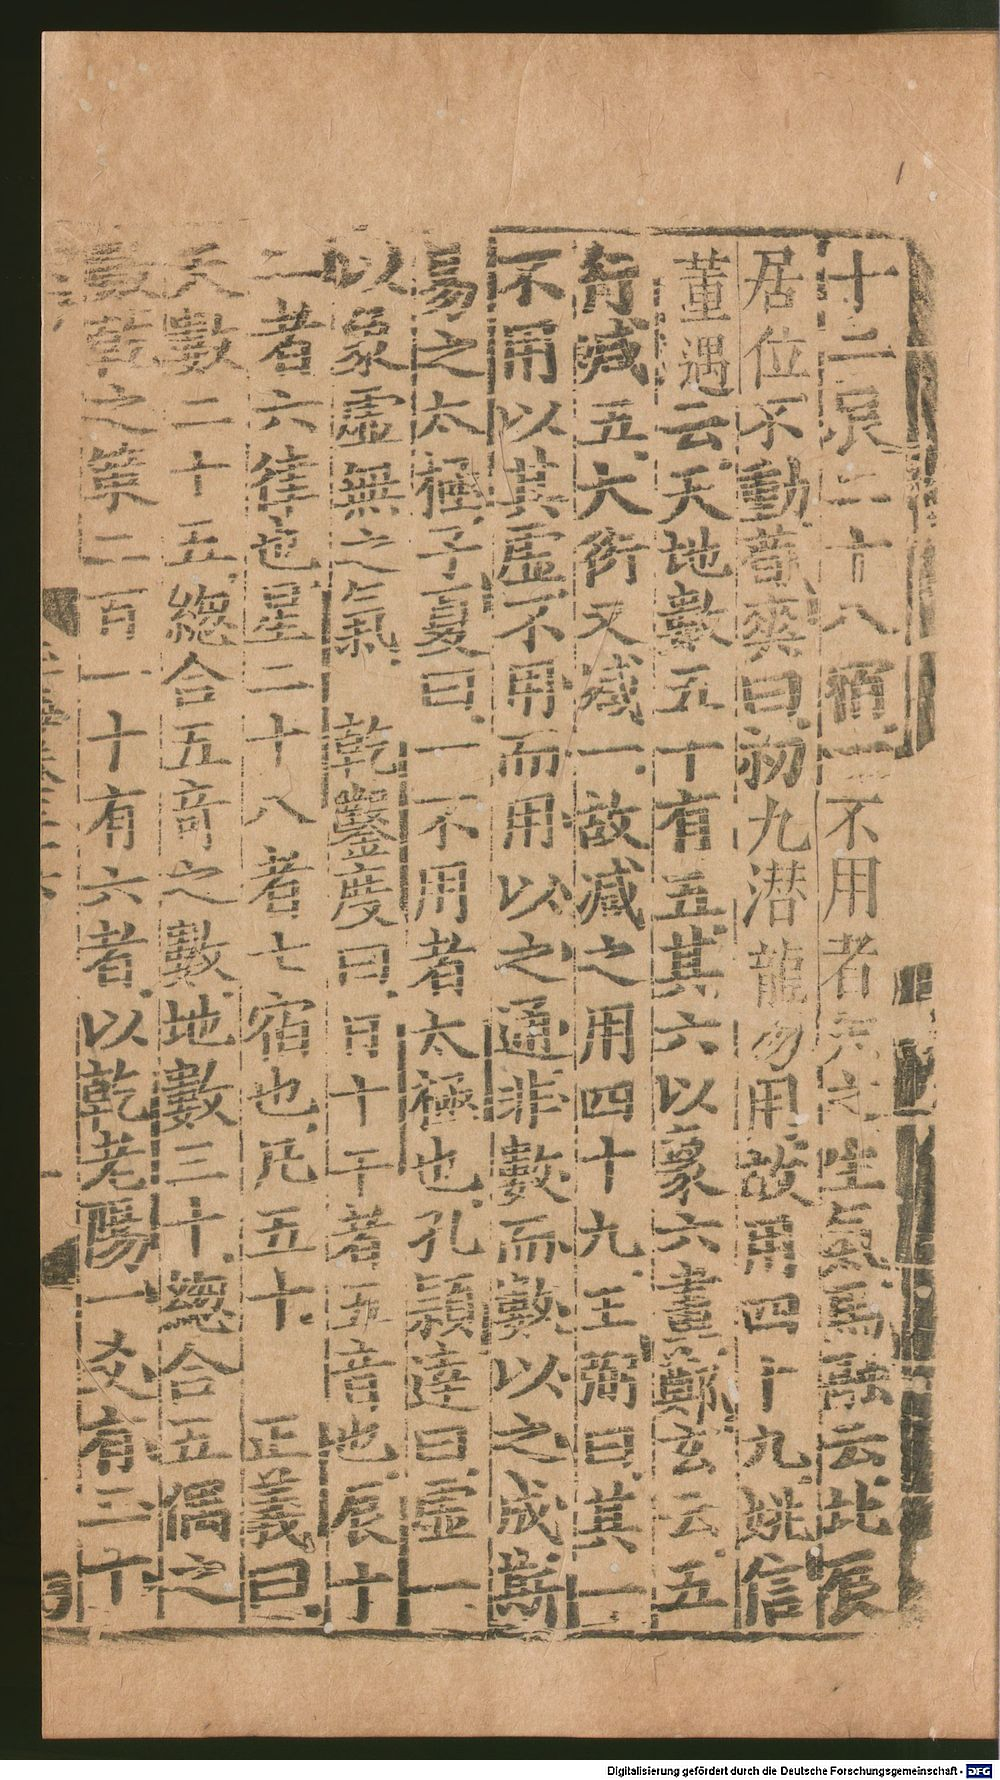 十二辰二十八宿一不用者天之生氣馬融云北辰
居位不動荀爽曰初九潛龍勿用故用四十九姚信
董遇云天地數五十有五其六以象六畫鄭玄云五
行減五大衍又減一故減之用四十九王弼曰其一
不用以其虛不用而用以之通非數而數以之成斯
易之太極子夏曰一不用者太極也孔頴達曰虛一
以象虛無之氣 乾鑿度曰日十干者五音也辰十
二者六律也星二十八者七宿也凡五十 正義曰
天數二十五總合五竒之數地數三十總合五偶之
數乾之策二百一十有六者以乾老陽一爻有三十
Digitalisierung gefördert durch die Deutsche Forschungsgemeinschaft - DFG